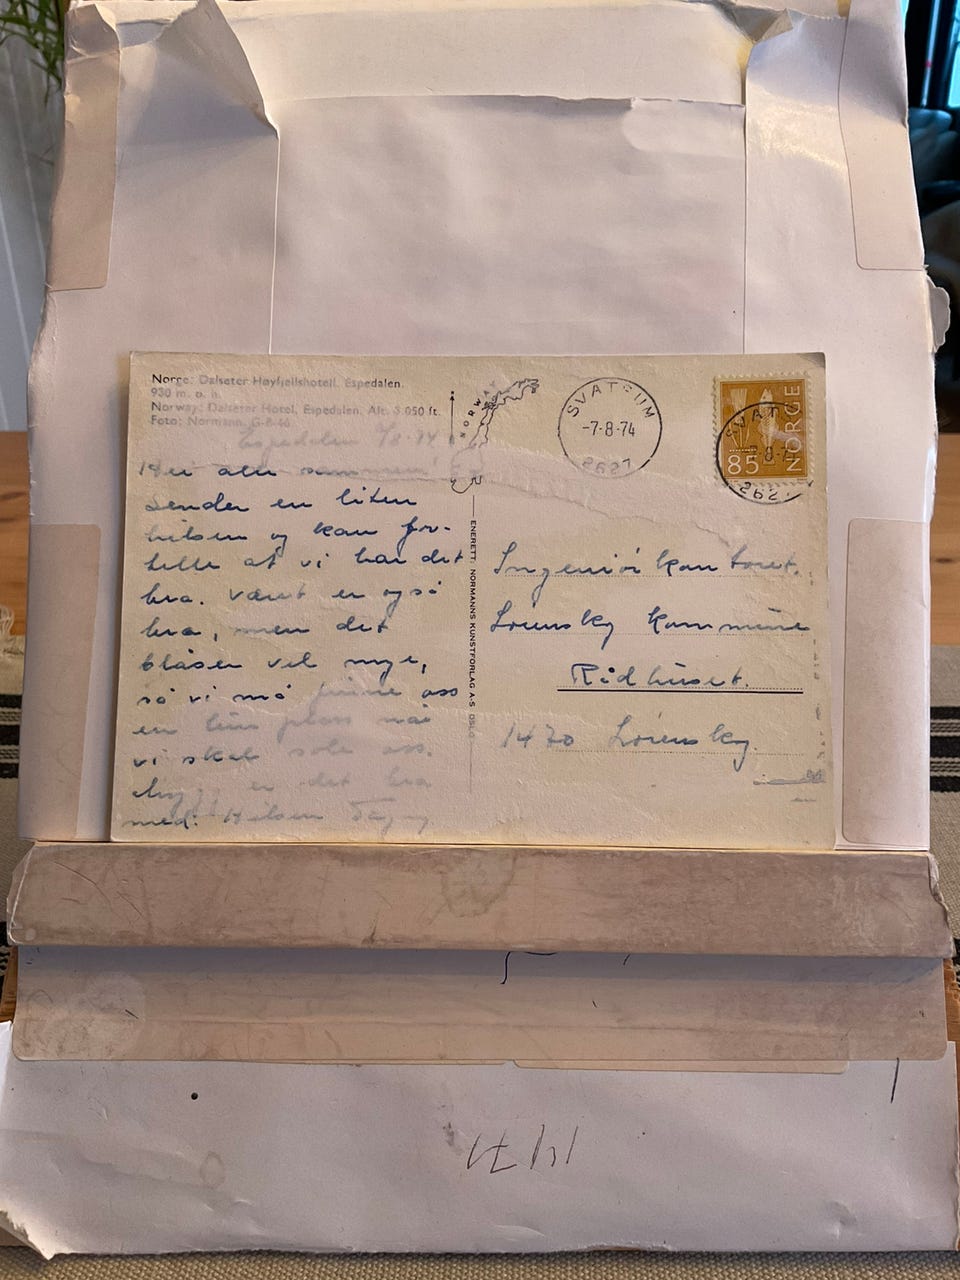 Norge: Dalseter Høyfjellshotell, Espedalen.
930 m. o. h.
Norway: Dalseter Hotel, Espedalen, Alt. 3 050 ft.
Foto: Normann. G-8-46
Espedalen 7/8-74
Hei alle sammen!
Sender en liten
hilsen og kan for-
telle at vi har det
bra. Været er også
bra, men det
blåser vel mye,
så vi må finne oss
en lun plass når
vi skal sole oss.
er det bra
med. Hilsen
NORWAY
ENERETT: NORMANNS KUNSTFORLAG A-S OSLO
SVATSUM
-7-8-74
2627
NORGE
85
SVATSUM
2627
Ingeniørkontoret.
Lørenskog kommune
Rådhuset.
1470 Lørenskog.